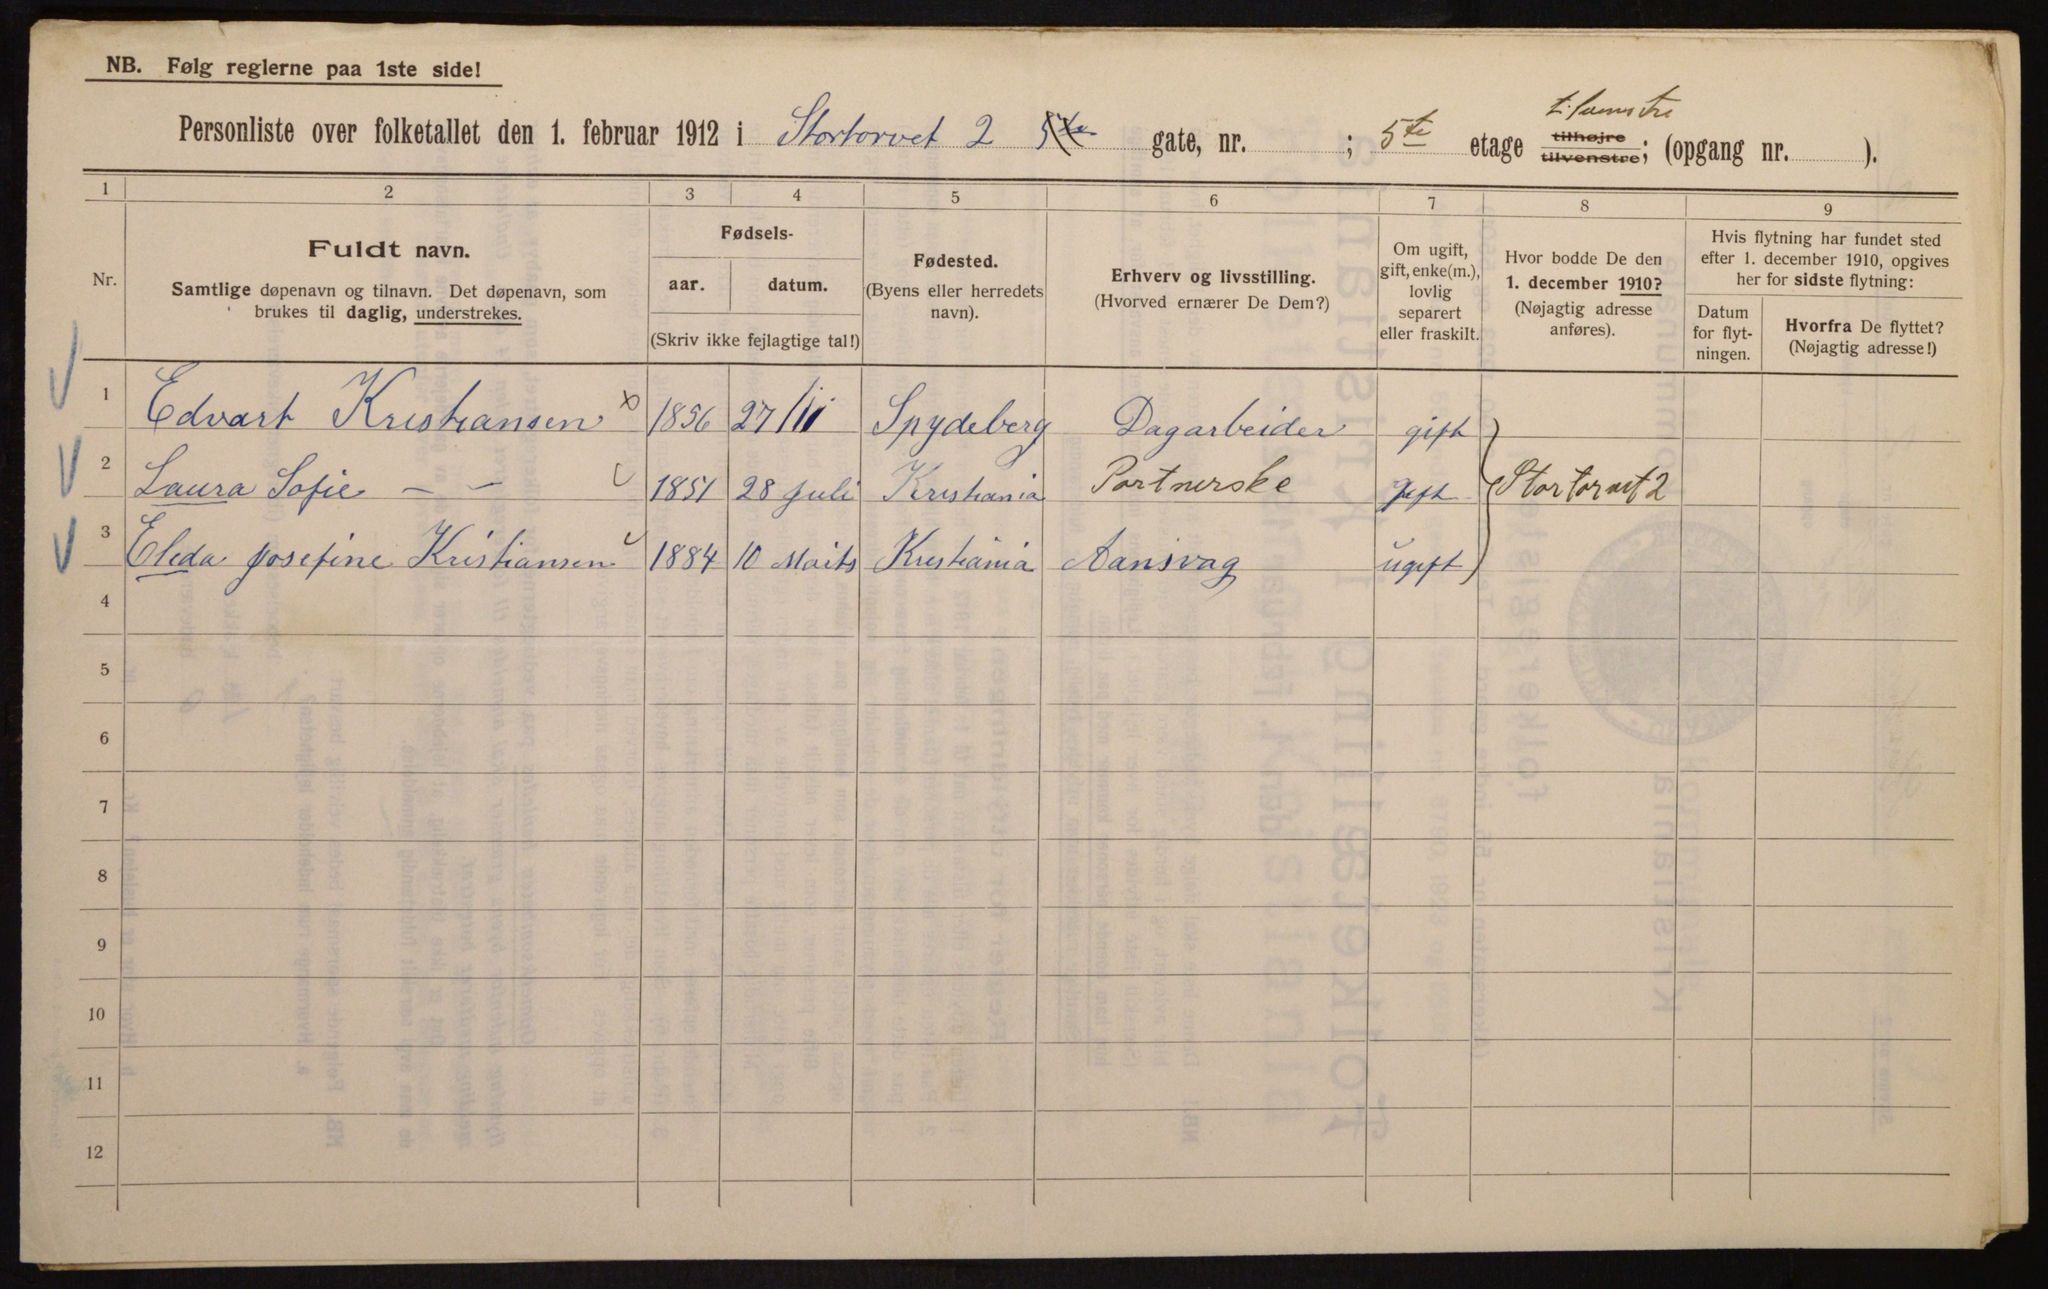 NB. Følg reglerne paa 1ste side!
til venstre
Personliste over folketallet den 1. februar 1912 i Stortorvet 2 5te gate, nr. ; 5te etage tilhøjre tilvenstre; (opgang nr. ).
1 2 3 4 5 6 7 8 9
Nr.
Fuldt navn.
Samtlige døpenavn og tilnavn. Det døpenavn, som
brukes til daglig, understrekes.
Fødsels-
aar. datum.
(Skriv ikke fejlagtige tal!)
Fødested.
(Byens eller herredets
navn).
Erhverv og livsstilling.
(Hvorved ernærer De Dem?)
Om ugift,
gift, enke(m.),
lovlig
separert
eller fraskilt.
Hvor bodde De den
1. december 1910?
(Nøjagtig adresse
anføres).
Hvis flytning har fundet sted
efter 1. december 1910, opgives
her for sidste flytning:
Datum
for flyt-
ningen.
Hvorfra De flyttet?
(Nøjagtig adresse!)
1 Edvart Kristiansen x 1856 27/III Spydeberg Dagarbeider gift
2 Laura Sofie — — 1851 28 Juli Kristiania Portnerske gift Stortorvet 2
3 Eleda Josefine Kristiansen 1884 10 Marts Kristiania Aansvag ugift
4
5
6
7
8
9
10
11
12